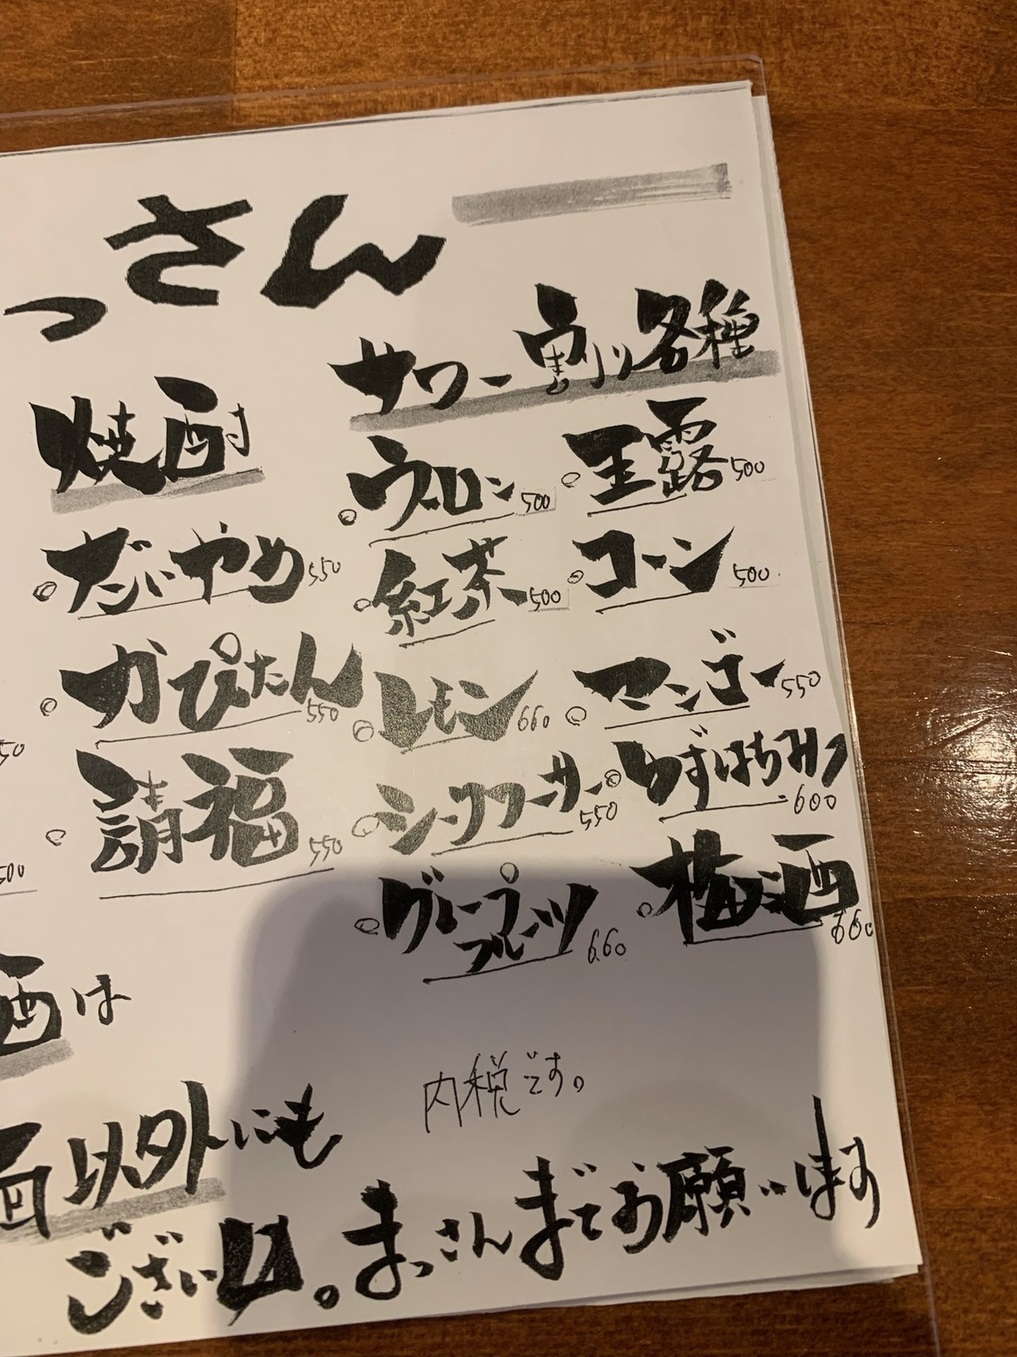 っさん
サワー割り各種
焼酎
ウーロン 500
玉露 500
だいやめ 550
紅茶 500
コーン 500
かぴたん 550
レモン 660
マンゴー 550
請福 550
シークワーサー 550
ゆずはちみつ 600
グレープフルーツ 660
梅酒 660
50
500
酒は
内税です。
画以外にも
ございます。まっさんまでお願いします